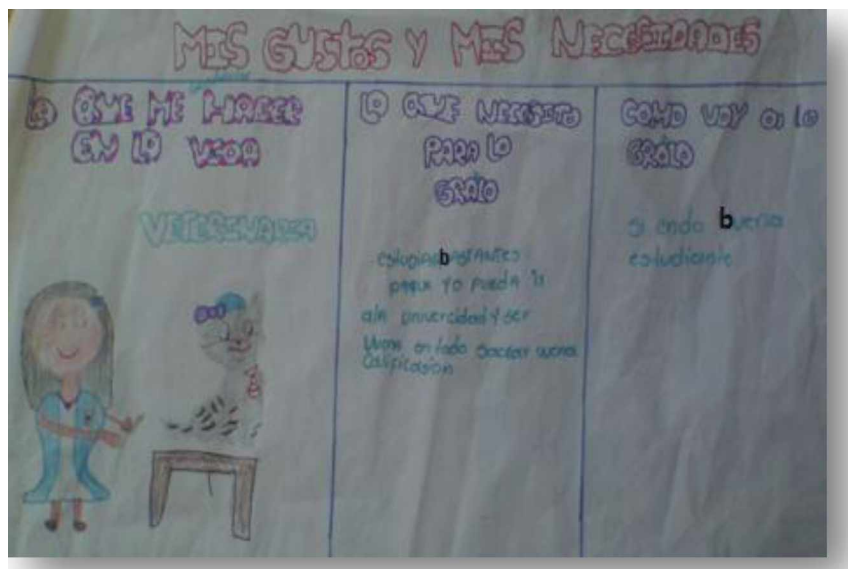 MIS GUSTOS Y MIS NECESIDADES
LO QUE ME HACER
EN LA VIDA
VETERINARIA
LO QUE NECESITO
PARA LO
GRALO
estudiar bastantes
para yo pueda ir
ala univercidad y ser
buena en todo sacar
Calificasion
COMO VOY a lo
GRALO
si endo buena
estudiante